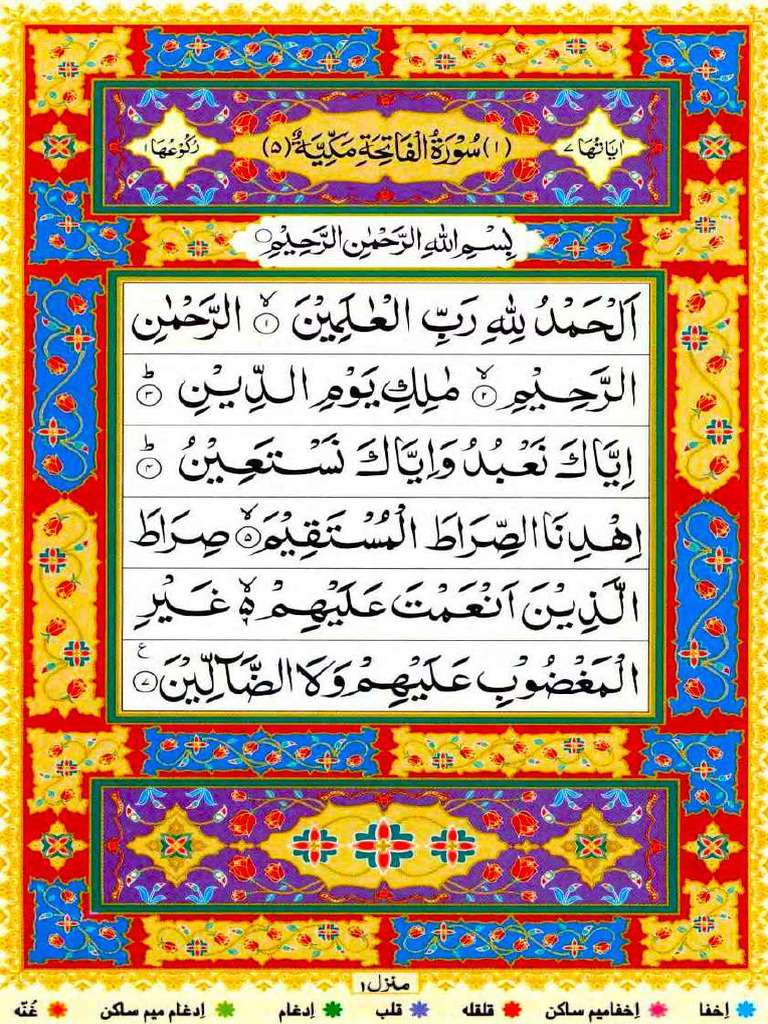 اٰيَاتُهَا ٧ (١) سُوْرَةُ الْفَاتِحَةِ مَكِّيَّةٌ (٥) رُكُوْعُهَا ١
بِسْمِ اللهِ الرَّحْمٰنِ الرَّحِيْمِ
اَلْحَمْدُ لِلّٰهِ رَبِّ الْعٰلَمِيْنَ ۙ﴿١﴾ الرَّحْمٰنِ
الرَّحِيْمِ ۙ﴿٢﴾ مٰلِكِ يَوْمِ الدِّيْنِ ؕ﴿٣﴾
اِيَّاكَ نَعْبُدُ وَاِيَّاكَ نَسْتَعِيْنُ ؕ﴿٤﴾
اِهْدِنَا الصِّرَاطَ الْمُسْتَقِيْمَ ۙ﴿٥﴾ صِرَاطَ
الَّذِيْنَ اَنْعَمْتَ عَلَيْهِمْ ۙ۬ غَيْرِ
الْمَغْضُوْبِ عَلَيْهِمْ وَلَا الضَّآلِّيْنَ ۧ﴿٧﴾
منزل ١
اِخفا اِخفامیم ساکن قلقله قلب اِدغام اِدغام میم ساکن غُنّه